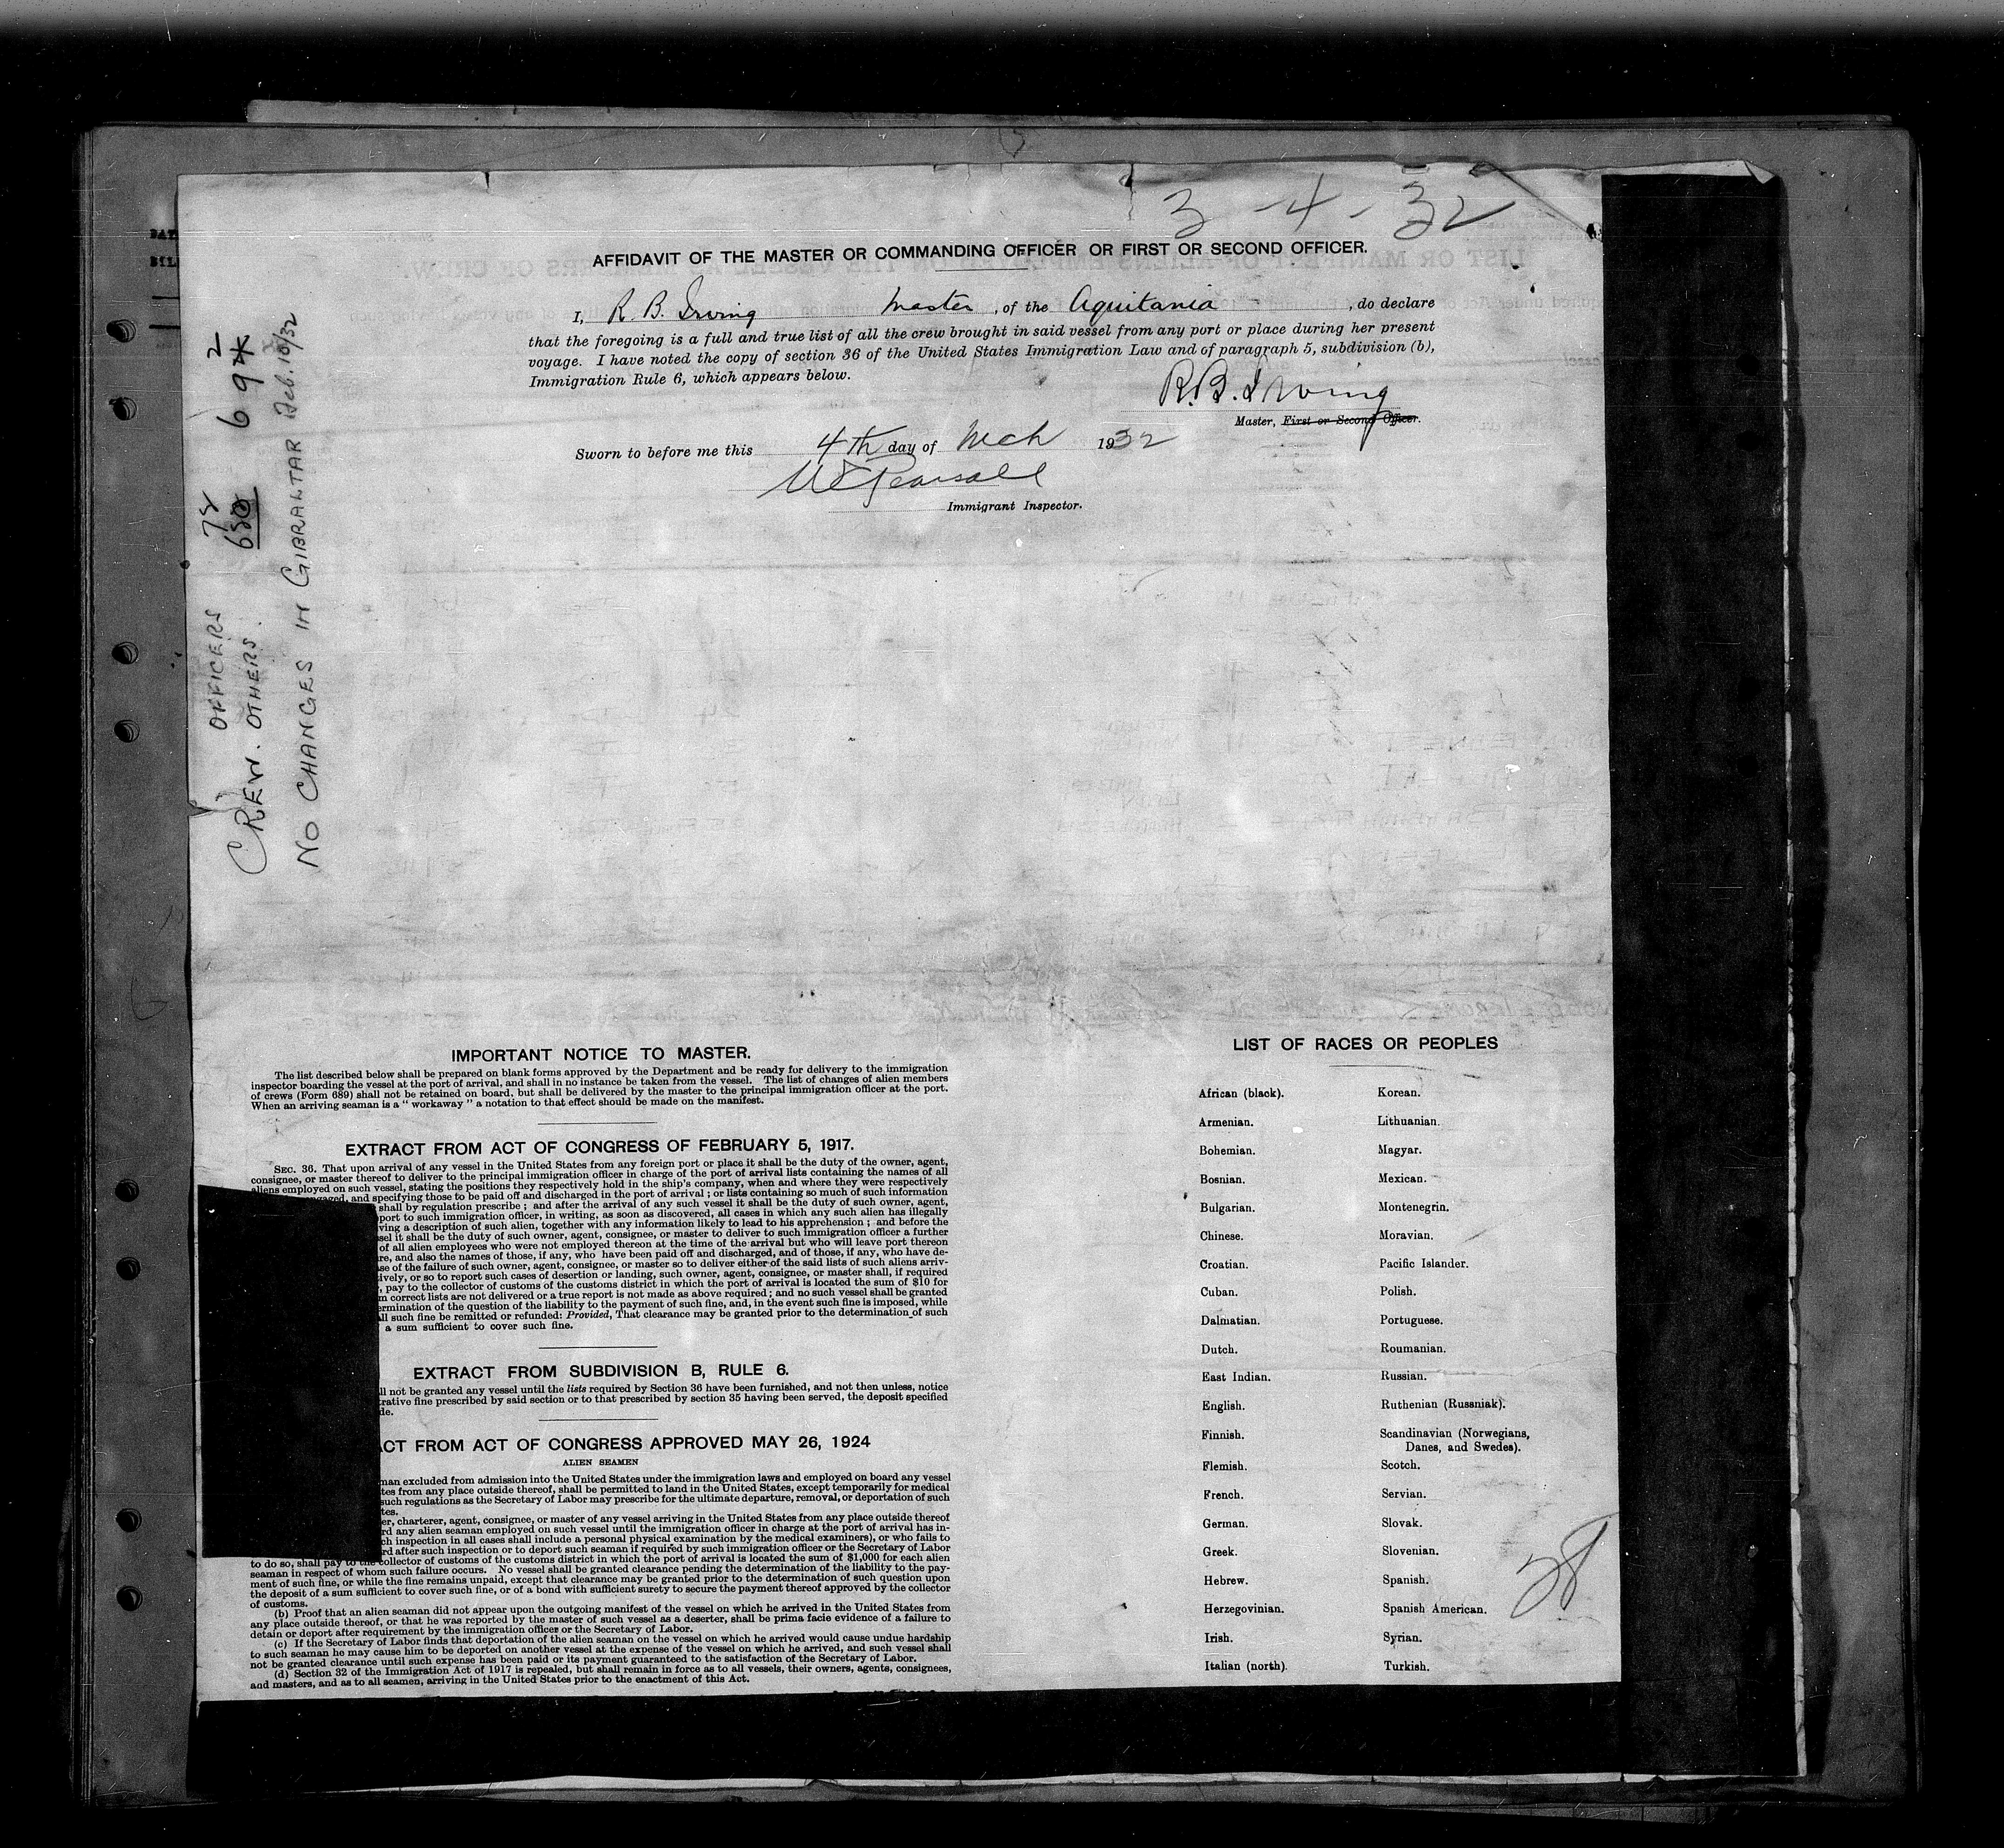 3-4-32
AFFIDAVIT OF THE MASTER OR COMMANDING OFFICER OR FIRST OR SECOND OFFICER.
I, R. B. Irving Master, of the Aquitania, do declare
that the foregoing is a full and true list of all the crew brought in said vessel from any port or place during her present
voyage. I have noted the copy of section 36 of the United States Immigration Law and of paragraph 5, subdivision (b),
Immigration Rule 6, which appears below.
R.B. Irving
Master, First or Second Officer.
Sworn to before me this 4th day of Mch 1932
Immigrant Inspector.
OFFICERS 72
CREW. OTHERS.
NO CHANGES IN GIBRALTAR Feb. 10/32
IMPORTANT NOTICE TO MASTER.
The list described below shall be prepared on blank forms approved by the Department and be ready for delivery to the immigration
inspector boarding the vessel at the port of arrival, and shall in no instance be taken from the vessel. The list of changes of alien members
of crews (Form 689) shall not be retained on board, but shall be delivered by the master to the principal immigration officer at the port.
When an arriving seaman is a "workaway" a notation to that effect should be made on the manifest.
EXTRACT FROM ACT OF CONGRESS OF FEBRUARY 5, 1917.
SEC. 36. That upon arrival of any vessel in the United States from any foreign port or place it shall be the duty of the owner, agent,
consignee, or master thereof to deliver to the principal immigration officer in charge of the port of arrival lists containing the names of all
aliens employed on such vessel, stating the positions they respectively hold in the ship's company, when and where they were respectively
engaged, and specifying those to be paid off and discharged in the port of arrival; or lists containing so much of such information
shall by regulation prescribe; and after the arrival of any such vessel it shall be the duty of such owner, agent,
port to such immigration officer, in writing, as soon as discovered, all cases in which any such alien has illegally
ving a description of such alien, together with any information likely to lead to his apprehension; and before the
sel it shall be the duty of such owner, agent, consignee, or master to deliver to such immigration officer a further
of all alien employees who were not employed thereon at the time of the arrival but who will leave port thereon
re, and also the names of those, if any, who have been paid off and discharged, and of those, if any, who have de-
se of the failure of such owner, agent, consignee, or master so to deliver either of the said lists of such aliens arriv-
tively, or so to report such cases of desertion or landing, such owner, agent, consignee, or master shall, if required
, pay to the collector of customs of the customs district in which the port of arrival is located the sum of $10 for
m correct lists are not delivered or a true report is not made as above required; and no such vessel shall be granted
ermination of the question of the liability to the payment of such fine, and, in the event such fine is imposed, while
ll such fine be remitted or refunded: Provided, That clearance may be granted prior to the determination of such
a sum sufficient to cover such fine.
EXTRACT FROM SUBDIVISION B, RULE 6.
ll not be granted any vessel until the lists required by Section 36 have been furnished, and not then unless, notice
trative fine prescribed by said section or to that prescribed by section 35 having been served, the deposit specified
de.
ACT FROM ACT OF CONGRESS APPROVED MAY 26, 1924
ALIEN SEAMEN
man excluded from admission into the United States under the immigration laws and employed on board any vessel
tes from any place outside thereof, shall be permitted to land in the United States, except temporarily for medical
such regulations as the Secretary of Labor may prescribe for the ultimate departure, removal, or deportation of such
tes.
er, charterer, agent, consignee, or master of any vessel arriving in the United States from any place outside thereof
rd any alien seaman employed on such vessel until the immigration officer in charge at the port of arrival has in-
ch inspection in all cases shall include a personal physical examination by the medical examiners), or who fails to
rd after such inspection or to deport such seaman if required by such immigration officer or the Secretary of Labor
to do so, shall pay to the collector of customs of the customs district in which the port of arrival is located the sum of $1,000 for each alien
seaman in respect of whom such failure occurs. No vessel shall be granted clearance pending the determination of the liability to the pay-
ment of such fine, or while the fine remains unpaid, except that clearance may be granted prior to the determination of such question upon
the deposit of a sum sufficient to cover such fine, or of a bond with sufficient surety to secure the payment thereof approved by the collector
of customs.
(b) Proof that an alien seaman did not appear upon the outgoing manifest of the vessel on which he arrived in the United States from
any place outside thereof, or that he was reported by the master of such vessel as a deserter, shall be prima facie evidence of a failure to
detain or deport after requirement by the immigration officer or the Secretary of Labor.
(c) If the Secretary of Labor finds that deportation of the alien seaman on the vessel on which he arrived would cause undue hardship
to such seaman he may cause him to be deported on another vessel at the expense of the vessel on which he arrived, and such vessel shall
not be granted clearance until such expense has been paid or its payment guaranteed to the satisfaction of the Secretary of Labor.
(d) Section 32 of the Immigration Act of 1917 is repealed, but shall remain in force as to all vessels, their owners, agents, consignees,
and masters, and as to all seamen, arriving in the United States prior to the enactment of this Act.
LIST OF RACES OR PEOPLES
African (black). Korean.
Armenian. Lithuanian.
Bohemian. Magyar.
Bosnian. Mexican.
Bulgarian. Montenegrin.
Chinese. Moravian.
Croatian. Pacific Islander.
Cuban. Polish.
Dalmatian. Portuguese.
Dutch. Roumanian.
East Indian. Russian.
English. Ruthenian (Russniak).
Finnish. Scandinavian (Norwegians,
Danes, and Swedes).
Flemish. Scotch.
French. Servian.
German. Slovak.
Greek. Slovenian.
Hebrew. Spanish.
Herzegovinian. Spanish American.
Irish. Syrian.
Italian (north). Turkish.
28